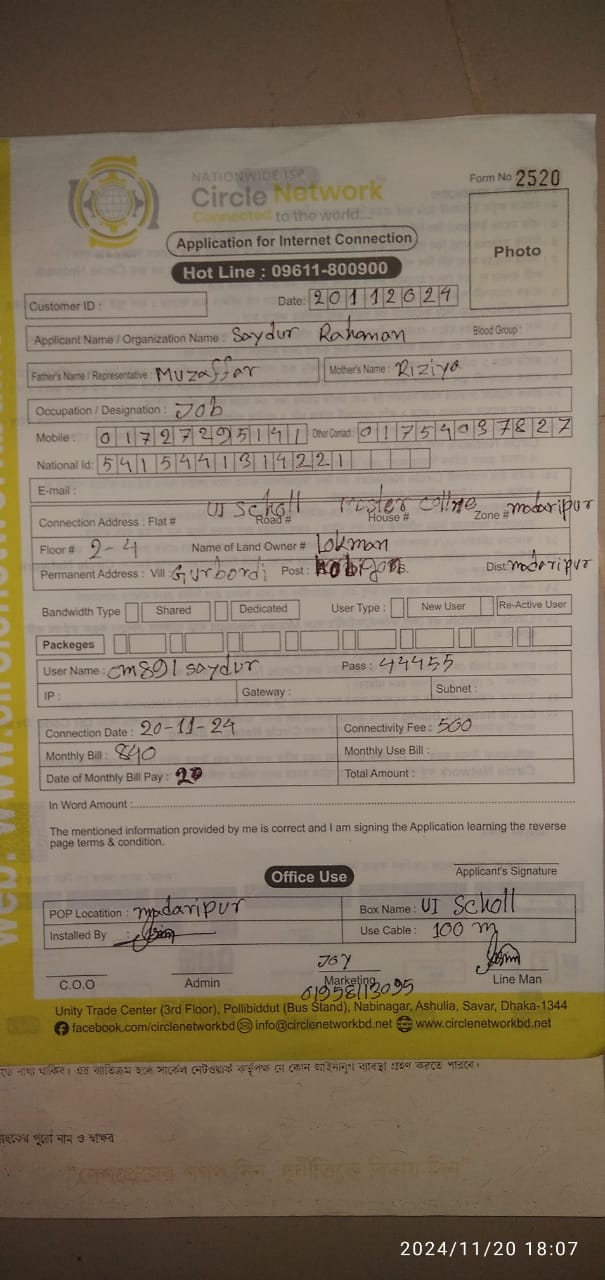 NATIONWIDE ISP
Circle Network
Connected to the world...
Form No 2520
Application for Internet Connection
Photo
Hot Line : 09611-800900
Customer ID :
Date: 20112024
Applicant Name / Organization Name : Saydur Rahaman Blood Group :
Father's Name / Representative : Muzaffar Mother's Name : Riziya
Occupation / Designation : Job
Mobile : 01727295141 Other Contact : 01754037827
National Id: 5415441314221
E-mail :
Connection Address : Flat # UI Scholl Road # House # Zone # madaripur
Floor # 2-4 Name of Land Owner # Lokman
Permanent Address : Vill : Gurbordi Post : Dist: madaripur
Bandwidth Type Shared Dedicated User Type : New User Re-Active User
Packeges
User Name : cm891 saydur Pass : 44455
IP : Gateway : Subnet :
Connection Date : 20-11-24 Connectivity Fee : 500
Monthly Bill : 840 Monthly Use Bill :
Date of Monthly Bill Pay : 20 Total Amount :
In Word Amount :
The mentioned information provided by me is correct and I am signing the Application learning the reverse
page terms & condition.
Applicant's Signature
Office Use
POP Locatition : madaripur Box Name : UI Scholl
Installed By Use Cable : 100 m
JOY
C.O.O Admin Marketing Line Man
01958113095
Unity Trade Center (3rd Floor), Pollibiddut (Bus Stand), Nabinagar, Ashulia, Savar, Dhaka-1344
facebook.com/circlenetworkbd info@circlenetworkbd.net www.circlenetworkbd.net
2024/11/20 18:07